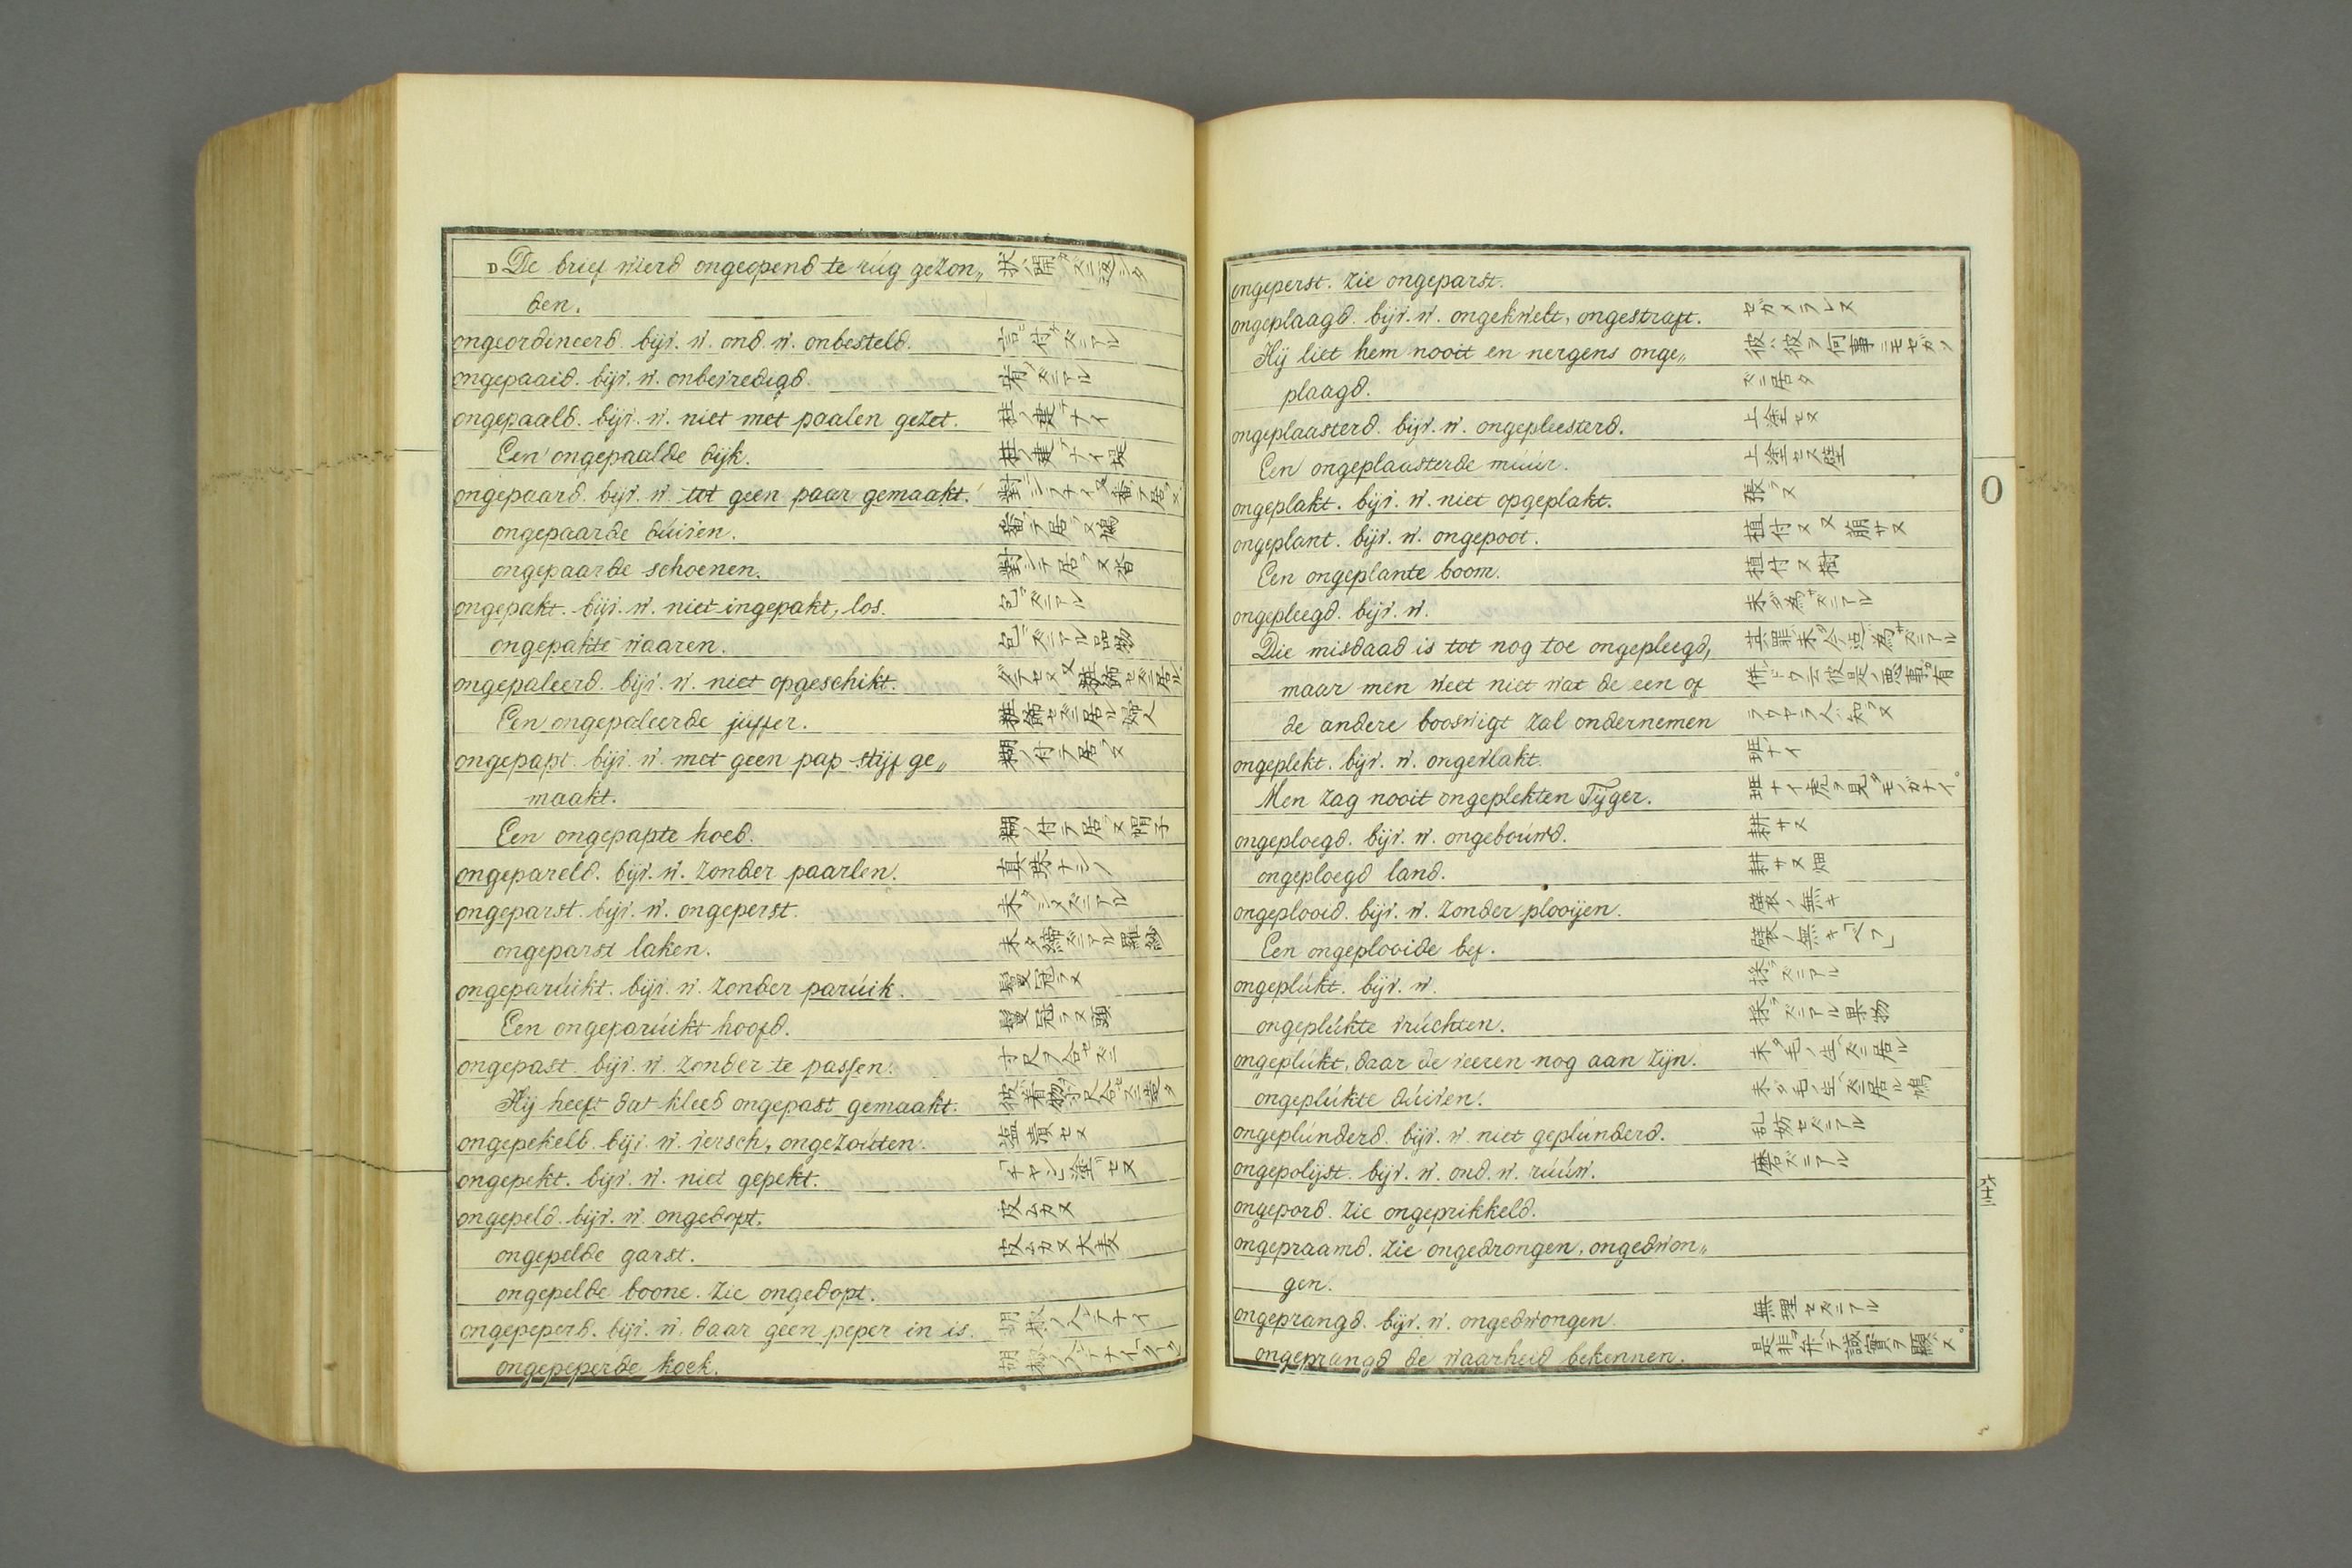 De brief wierd ongeopend te rúg gezon„ 状ハ開ズニ返シタ
den.
ongeordineerd. bijv. w. ond. w. onbesteld. 言付ズニアル
ongepaaid. bijv. w. onbevredigd. 宥ズニアル
ongepaald. bijv. w. niet met paalen gezet. 杜ノ建テナイ
Een ongepaalde dijk. 杜ノ建テナイ堤
ongepaard. bijv. w. tot geen paar gemaakt.
ongepaarde dúiven. 番テ居ラヌ鳩
ongepaarde schoenen. 對シテ居ラヌ沓
ongepakt. bijv. w. niet ingepakt, los. 包ズニアル
ongepakte waaren. 包ズニアル品物
ongepaleerd. bijv. w. niet opgeschikt.
Een ongepaleerde juffer. 粧飾セズニ居ル婦人
ongepapt. bijv. w. met geen pap stijf ge„ 糊ノ付テ居ラヌ
maakt.
Een ongepapte hoed. 糊ノ付テ居ラヌ帽子
ongepareld. bijv. w. zonder paarlen. 真珠ナシノ
ongeparst. bijv. w. ongeperst.
ongeparst laken. 未タ締ズニアル羅紗
ongeparúikt. bijv. w. zonder parúik. 鬘冠ラヌ
Een ongeparúikt hoofd. 鬘冠ラヌ頭
ongepast. bijv. w. zonder te passen. 寸尺ヲ合セズニ
Hij heeft dat kleed ongepast gemaakt.
ongepekeld. bijv. w. versch, ongezoúten. 塩漬セヌ
ongepekt. bijv. w. niet gepekt. 「チヤン」塗セヌ
ongepeld. bijv. w. ongedopt. 皮ムカヌ
ongepelde garst. 皮ムカヌ大麦
ongepelde boone. zie ongedopt.
ongepeperd. bijv. w. daar geen peper in is. 胡椒ノ入テナイ
ongepeperde koek. 胡椒ノ入テナイ
ongeperst. zie ongeparst.
ongeplaagd. bijv. w. ongekwelt, ongestraft. セガメラレヌ
Hij liet hem nooit en nergens onge„ 彼ハ彼ヲ何事ニモセガマ
plaagd. ズニ居タ
ongeplaasterd. bijv. w. ongepleesterd. 上塗セヌ
Een ongeplaasterde múúr. 上塗セヌ壁
ongeplakt. bijv. w. niet opgeplakt. 張ラヌ
ongeplant. bijv. w. ongepoot. 植付ヌ
Een ongeplante boom. 植付ヌ樹
ongepleegd. bijv. w. 未ダ為サズニアル
Die misdaad is tot nog toe ongepleegd, 其罪未ダ今迄為サズニアル
maar men weet niet wat de een of
de andere booswigt zal ondernemen ラウヤラ人ハ知ラヌ
ongeplekt. bijv. w. ongevlakt. 班ナイ
Men zag nooit ongeplekten Tijger. 班ナイ虎ヲ見タモノガナイ。
ongeploegd. bijv. w. ongeboúwd. 耕サヌ
ongeploegd land. 耕サヌ畑
ongeplooid. bijv. w. zonder plooijen. 襞ノ無キ
Een ongeplooide bef. 襞ノ無キ「ベフ」
ongeplúkt. bijv. w. 採ラズニアル
ongeplúkte vrúchten. 採ラズニアル果物
ongeplúkt, daar de veeren nog aan zijn. 未ダ毛ノ生ズニ居ル
ongeplúkte dúiven. 未ダ毛ノ生ズニ居ル鳩
ongeplúnderd. bijv. w. niet geplúnderd. 乱妨セズニアル
ongepolijst. bijv. w. ond. w. rúúw. 磨ズニアル
ongepord. zie ongeprikkeld.
ongepraamd. zie ongedrongen, ongedwon„
gen.
ongeprangd. bijv. w. ongedwongen. 無理セズニアル
ongeprangd de waarheid bekennen.
O
六十三